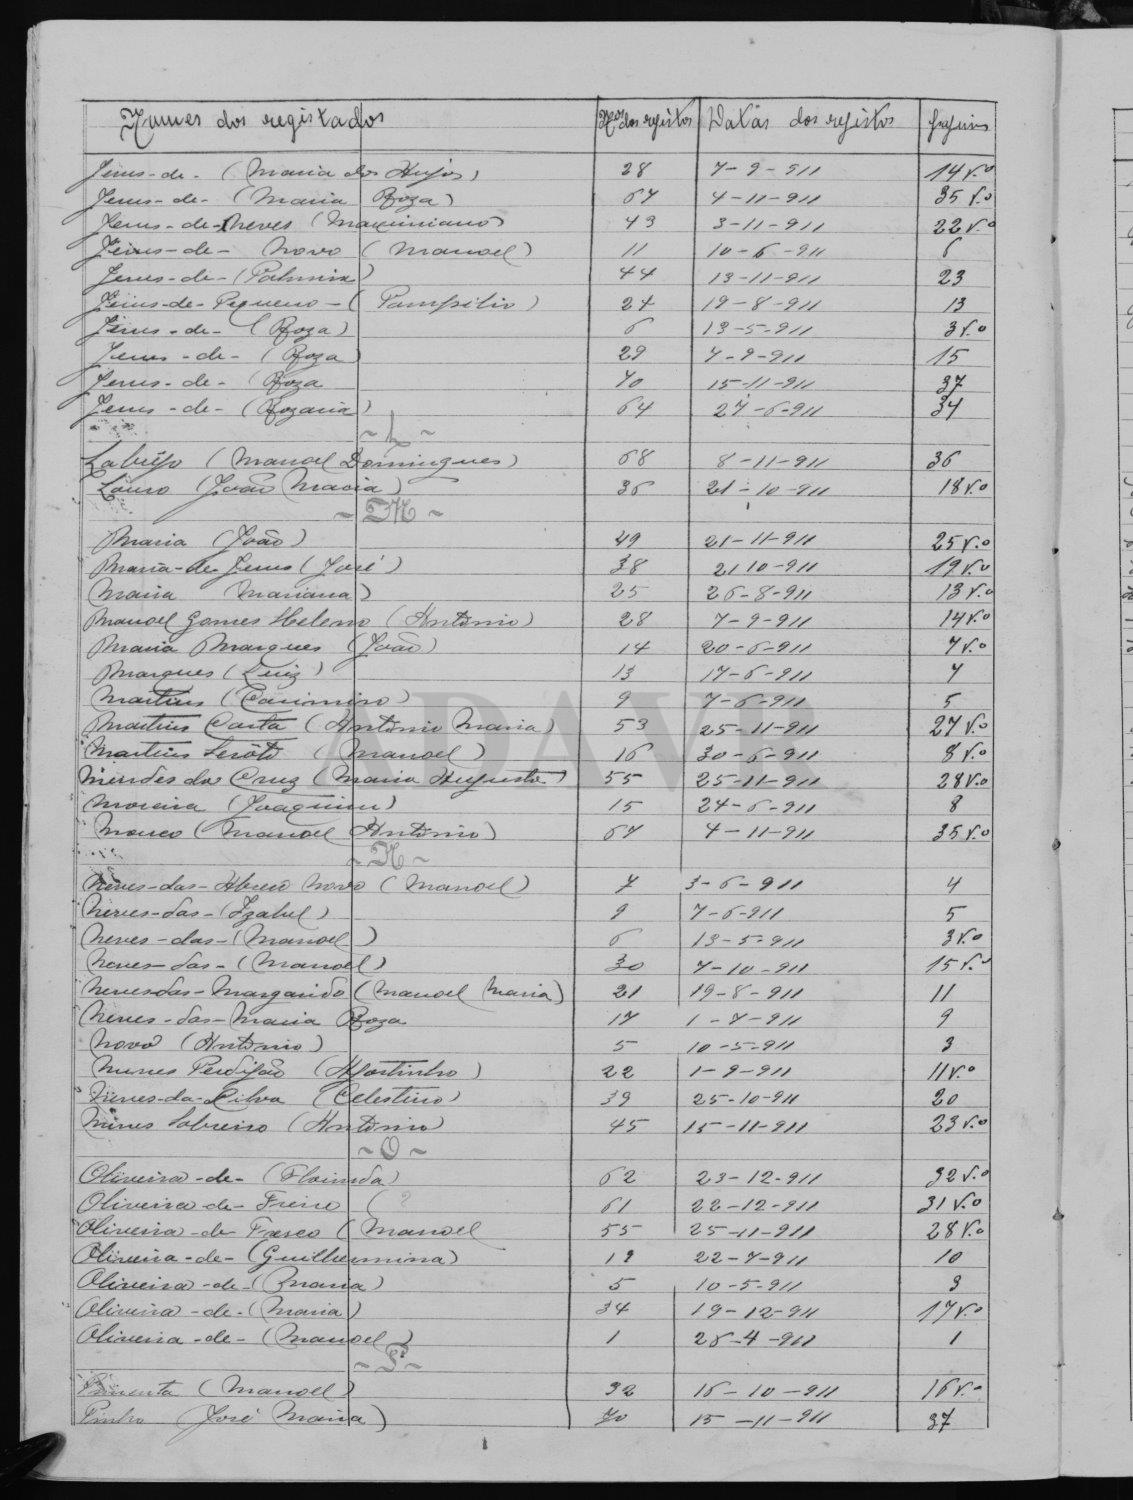 Nomes dos registados Nos dos registos Datas dos registos
Jesus-de- (Maria dos Anjos) 28 7-9-911 14 v.o
Jesus-de- (Maria Roza) 67 4-11-911 35 v.o
Jesus-de-Neves (Maximiano) 43 3-11-911 22 v.o
Jesus-de- Novo (Manoel) 11 10-6-911 6
Jesus-de- (Palmira) 44 13-11-911 23
Jesus-de-Pequeno-(Pampilio) 24 19-8-911 13
Jesus-de- (Roza) 6 13-5-911 3 v.o
Jesus-de- (Roza) 29 7-9-911 15
Jesus-de- (Roza 70 15-11-911 37
Jesus-de- (Rozaria) 64 27-6-911 34
~ L ~
(Manoel Domingues) 68 8-11-911 36
Louro (João Maria) 36 21-10-911 18 v.o
~ M ~
Maria (João) 49 21-11-911 25 v.o
Maria-de-Jesus (José) 38 21 10-911 19 v.o
Maria Mariana) 25 26-8-911 13 v.o
Manoel Gomes Heleno (Antonio) 28 7-9-911 14 v.o
Maria Marques (João) 14 20-6-911 7 v.o
Marques (Luiz) 13 17-6-911 7
Martins (Casimiro) 9 7-6-911 5
Martins Costa (Antonio Maria) 53 25-11-911 27 v.o
Martins (Manoel) 16 30-6-911 8 v.o
Mendes da Cruz (Maria Augusta) 55 25-11-911 28 v.o
Moreira (Joaquim) 15 24-6-911 8
(Manoel Antonio) 67 4-11-911 35 v.o
~ N ~
Neves-das-Abreu Novo (Manoel) 7 3-6-911 4
Neves-das-(Izabel) 9 7-6-911 5
Neves-das-(Manoel) 6 13-5-911 3 v.o
Neves-das-(Manoel) 30 7-10-911 15 v.o
Neves-das-Margarido (Manoel Maria) 21 19-8-911 11
Neves-das-Maria Roza 17 1-7-911 9
Novo (Antonio) 5 10-5-911 3
Nunes Perdigão (Agostinho) 22 1-9-911 11 v.o
Nunes-da-Silva (Celestino) 39 25-10-911 20
Nunes Sobreiro (Antonio) 45 15-11-911 23 v.o
~ O ~
Oliveira-de- (Florinda) 62 23-12-911 32 v.o
Oliveira-de-Freire (?) 61 22-12-911 31 v.o
Oliveira-de-Fresco (Manoel 55 25-11-911 28 v.o
Oliveira-de-(Guilhermina) 19 22-7-911 10
Oliveira-de-(Maria) 5 10-5-911 3
Oliveira-de-(Maria) 34 19-12-911 17 v.o
Oliveira-de-(Manoel) 1 26-4-911 1
~ P ~
Pimenta (Manoel) 32 16-10-911 16 v.o
Pinho (José Maria) 70 15-11-911 37
ADAV